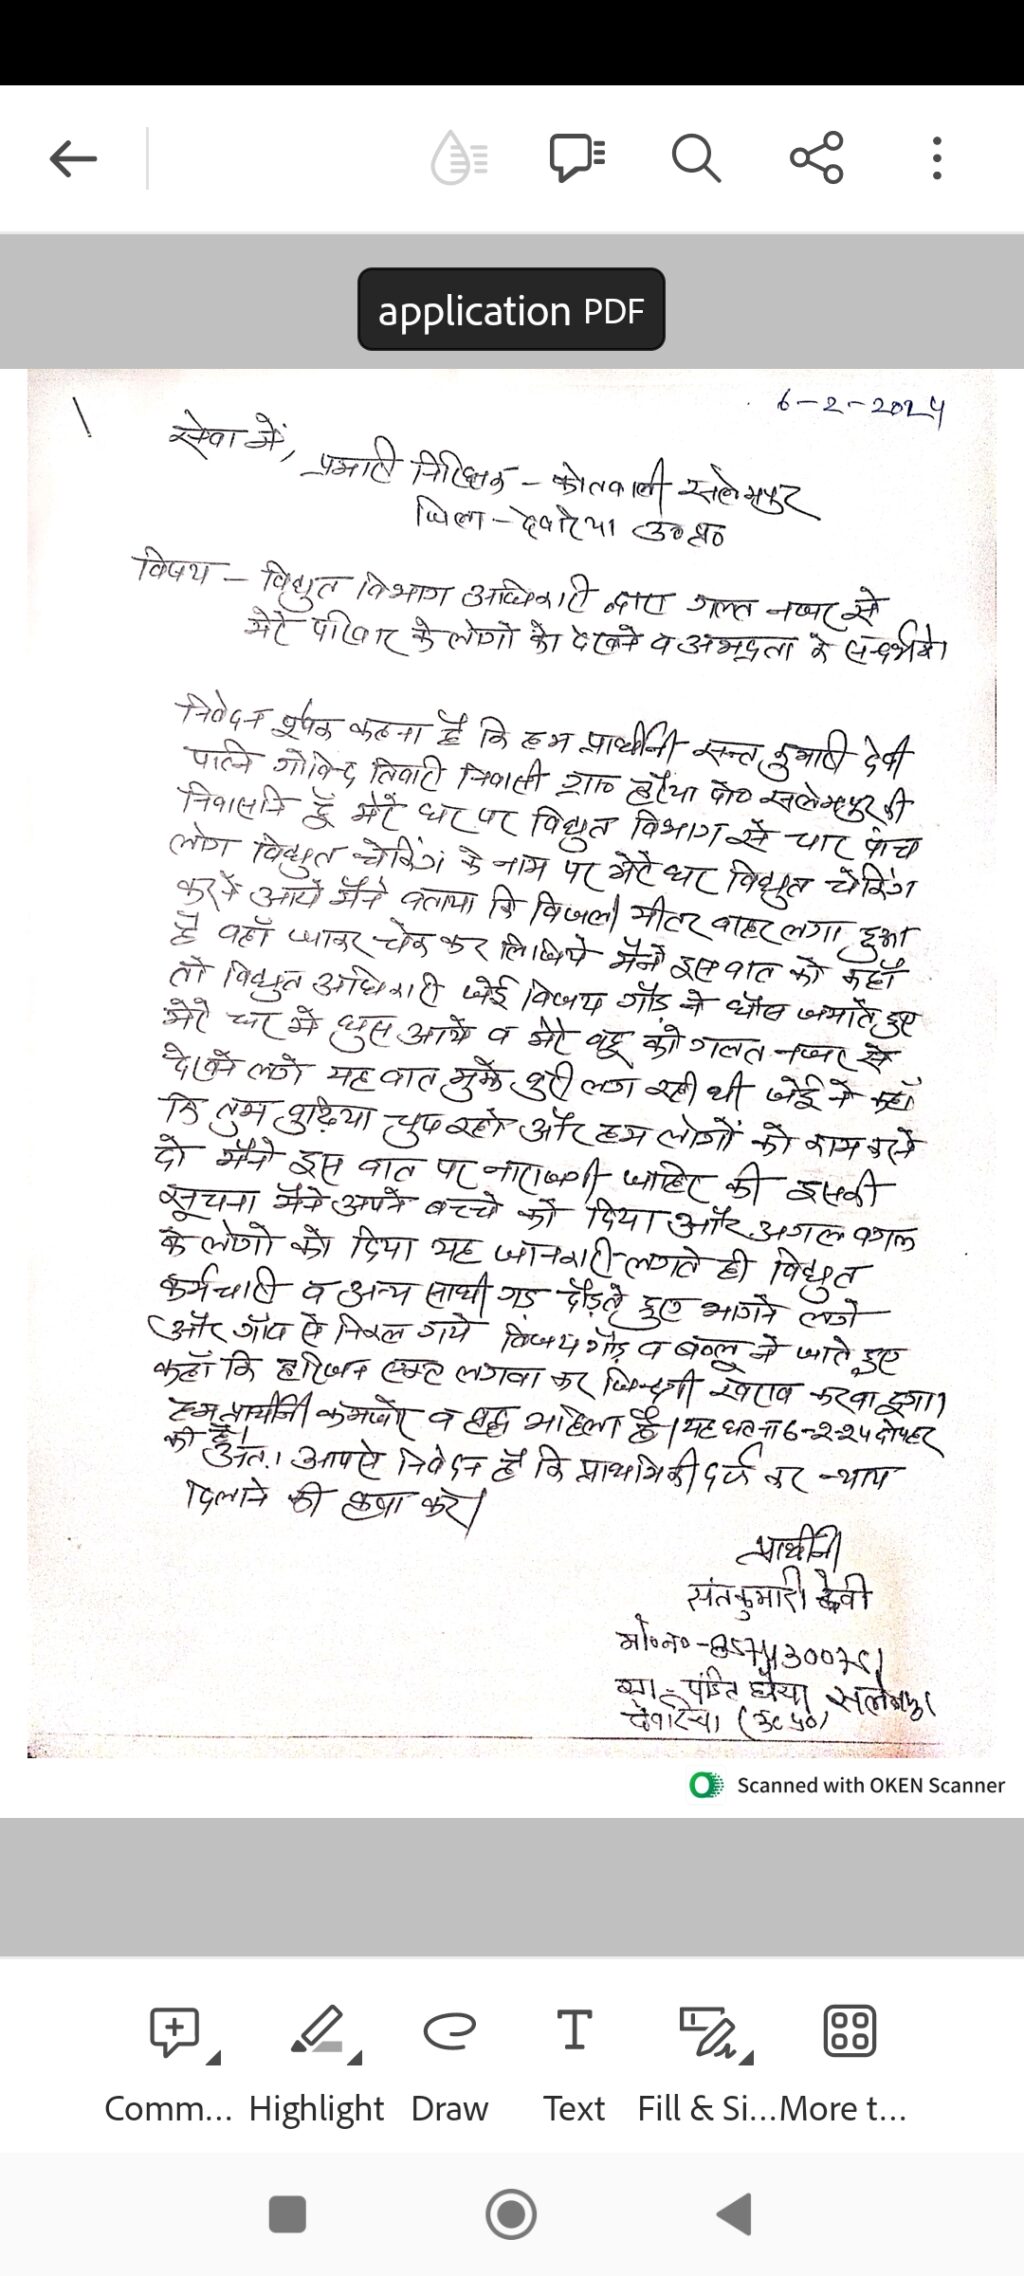 application PDF
6-2-2024
सेवा में,
प्रभारी निरिक्षक - कोतवाली सलेमपुर
जिला - देवरिया उ०प्र०
विषय - विद्युत विभाग अधिकारी द्वारा गलत नजर से
मेरे परिवार के लोगो को देखने व अभद्रता के सन्दर्भ में।
निवेदन कहना है कि हम प्रार्थीनी सन्त कुमारी देवी
पत्नि गोविन्द तिवारी निवासी ग्राम पो० सलेमपुर की
निवासनि हूँ मेरे घर पर विद्युत विभाग से चार पांच
लोग विद्युत चेकिंग के नाम पर मेरे घर विद्युत चेकिंग
करने आये मैने बताया कि बिजली मीटर बाहर लगा हुआ
है वहाँ जाकर चेक कर लिजिये मैने इस बात को कहाँ
तो विद्युत अधिकारी जेई विजय गौड़ ने धौस जमाते हुए
मेरे घर मे घुस आये व मेरे बहू को गलत नजर से
देखने लगे यह बात मुझे बुरी लग रही थी जेई ने कहाँ
कि तुम बुढ़िया चुप रहो और हम लोगों को काम करने
दो मैने इस बात पर नाराजगी जाहिर की इसकी
सूचना मैने अपने बच्चे को दिया और अगल बगल
के लोगो को दिया यह जानकारी लगते ही विद्युत
कर्मचारी व अन्य साथी गड़ दौड़ते हुए भागने लगे
और गाँव से निकल गये विजय गौड़ व बब्लू ने जाते हुए
कहाँ कि हरिजन लगवा कर जिन्दगी खराब करवा दूगा।
हम प्रार्थीनी कमजोर व महिला है। यह घटना 6-2-24 दोपहर
की है।
अतः आपसे निवेदन है कि प्राथमिकी दर्ज कर न्याय
दिलाने की कृपा करे।
प्रार्थीनी
संतकुमारी देवी
मो०न०-
पंडित सलेमपुर
देवरिया (उ०प्र०)
Scanned with OKEN Scanner
Comm... Highlight Draw Text Fill & Si... More t...